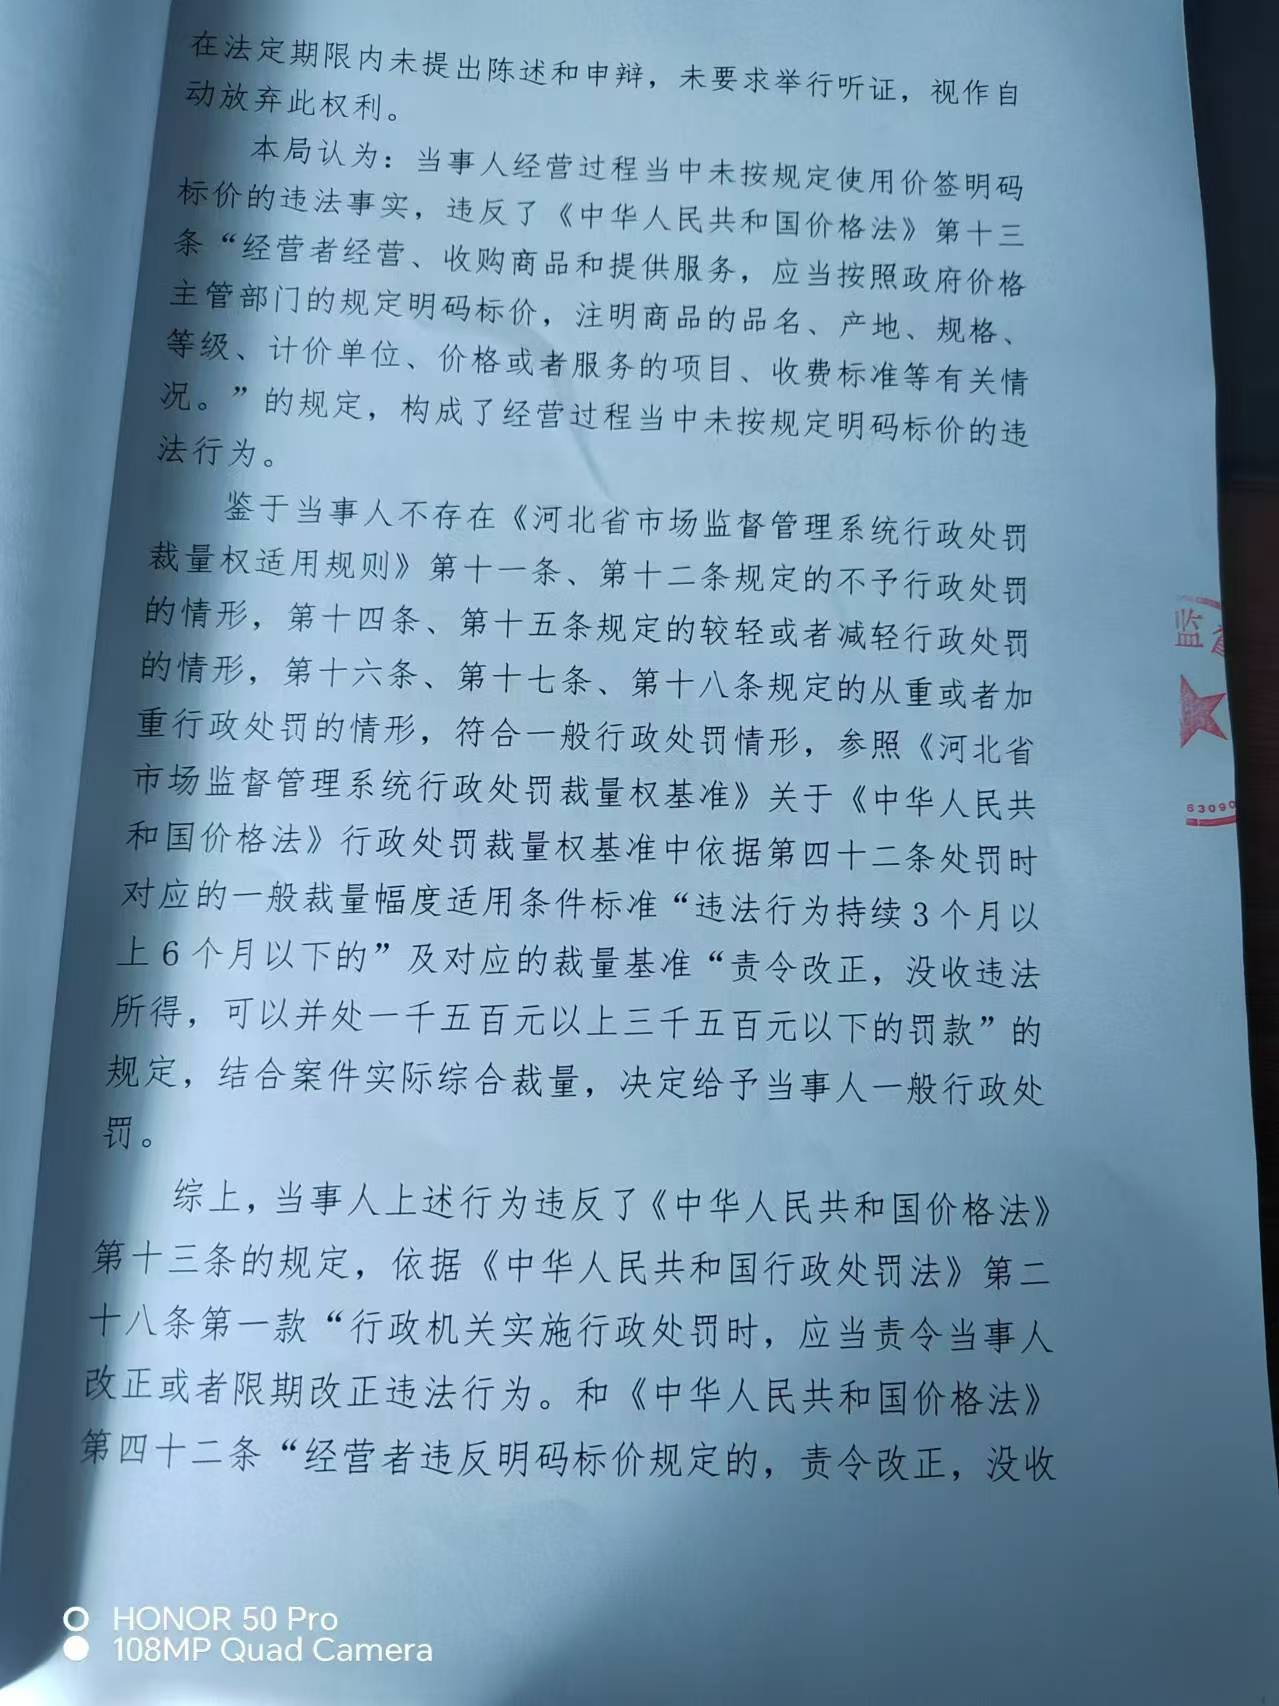 在法定期限内未提出陈述和申辩，未要求举行听证，视作自
动放弃此权利。
本局认为：当事人经营过程当中未按规定使用价签明码
标价的违法事实，违反了《中华人民共和国价格法》第十三
条“经营者经营、收购商品和提供服务，应当按照政府价格
主管部门的规定明码标价，注明商品的品名、产地、规格、
等级、计价单位、价格或者服务的项目、收费标准等有关情
况。”的规定，构成了经营过程当中未按规定明码标价的违
法行为。
鉴于当事人不存在《河北省市场监督管理系统行政处罚
裁量权适用规则》第十一条、第十二条规定的不予行政处罚
的情形，第十四条、第十五条规定的较轻或者减轻行政处罚
的情形，第十六条、第十七条、第十八条规定的从重或者加
重行政处罚的情形，符合一般行政处罚情形，参照《河北省
市场监督管理系统行政处罚裁量权基准》关于《中华人民共
和国价格法》行政处罚裁量权基准中依据第四十二条处罚时
对应的一般裁量幅度适用条件标准“违法行为持续3个月以
上6个月以下的”及对应的裁量基准“责令改正，没收违法
所得，可以并处一千五百元以上三千五百元以下的罚款”的
规定，结合案件实际综合裁量，决定给予当事人一般行政处
罚。
综上，当事人上述行为违反了《中华人民共和国价格法》
第十三条的规定，依据《中华人民共和国行政处罚法》第二
十八条第一款“行政机关实施行政处罚时，应当责令当事人
改正或者限期改正违法行为。和《中华人民共和国价格法》
第四十二条“经营者违反明码标价规定的，责令改正，没收
监督
63090
HONOR 50 Pro
108MP Quad Camera